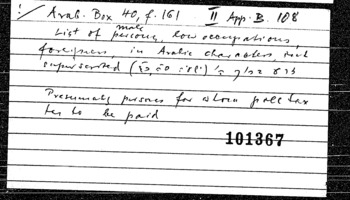 Arab. Box 40, f. 161 II App. B. 108
male
List of persons, low occupations,
foreigners in Arabic characters, and
superscribed
Presumably persons for whom poll tax
has to be paid
101367